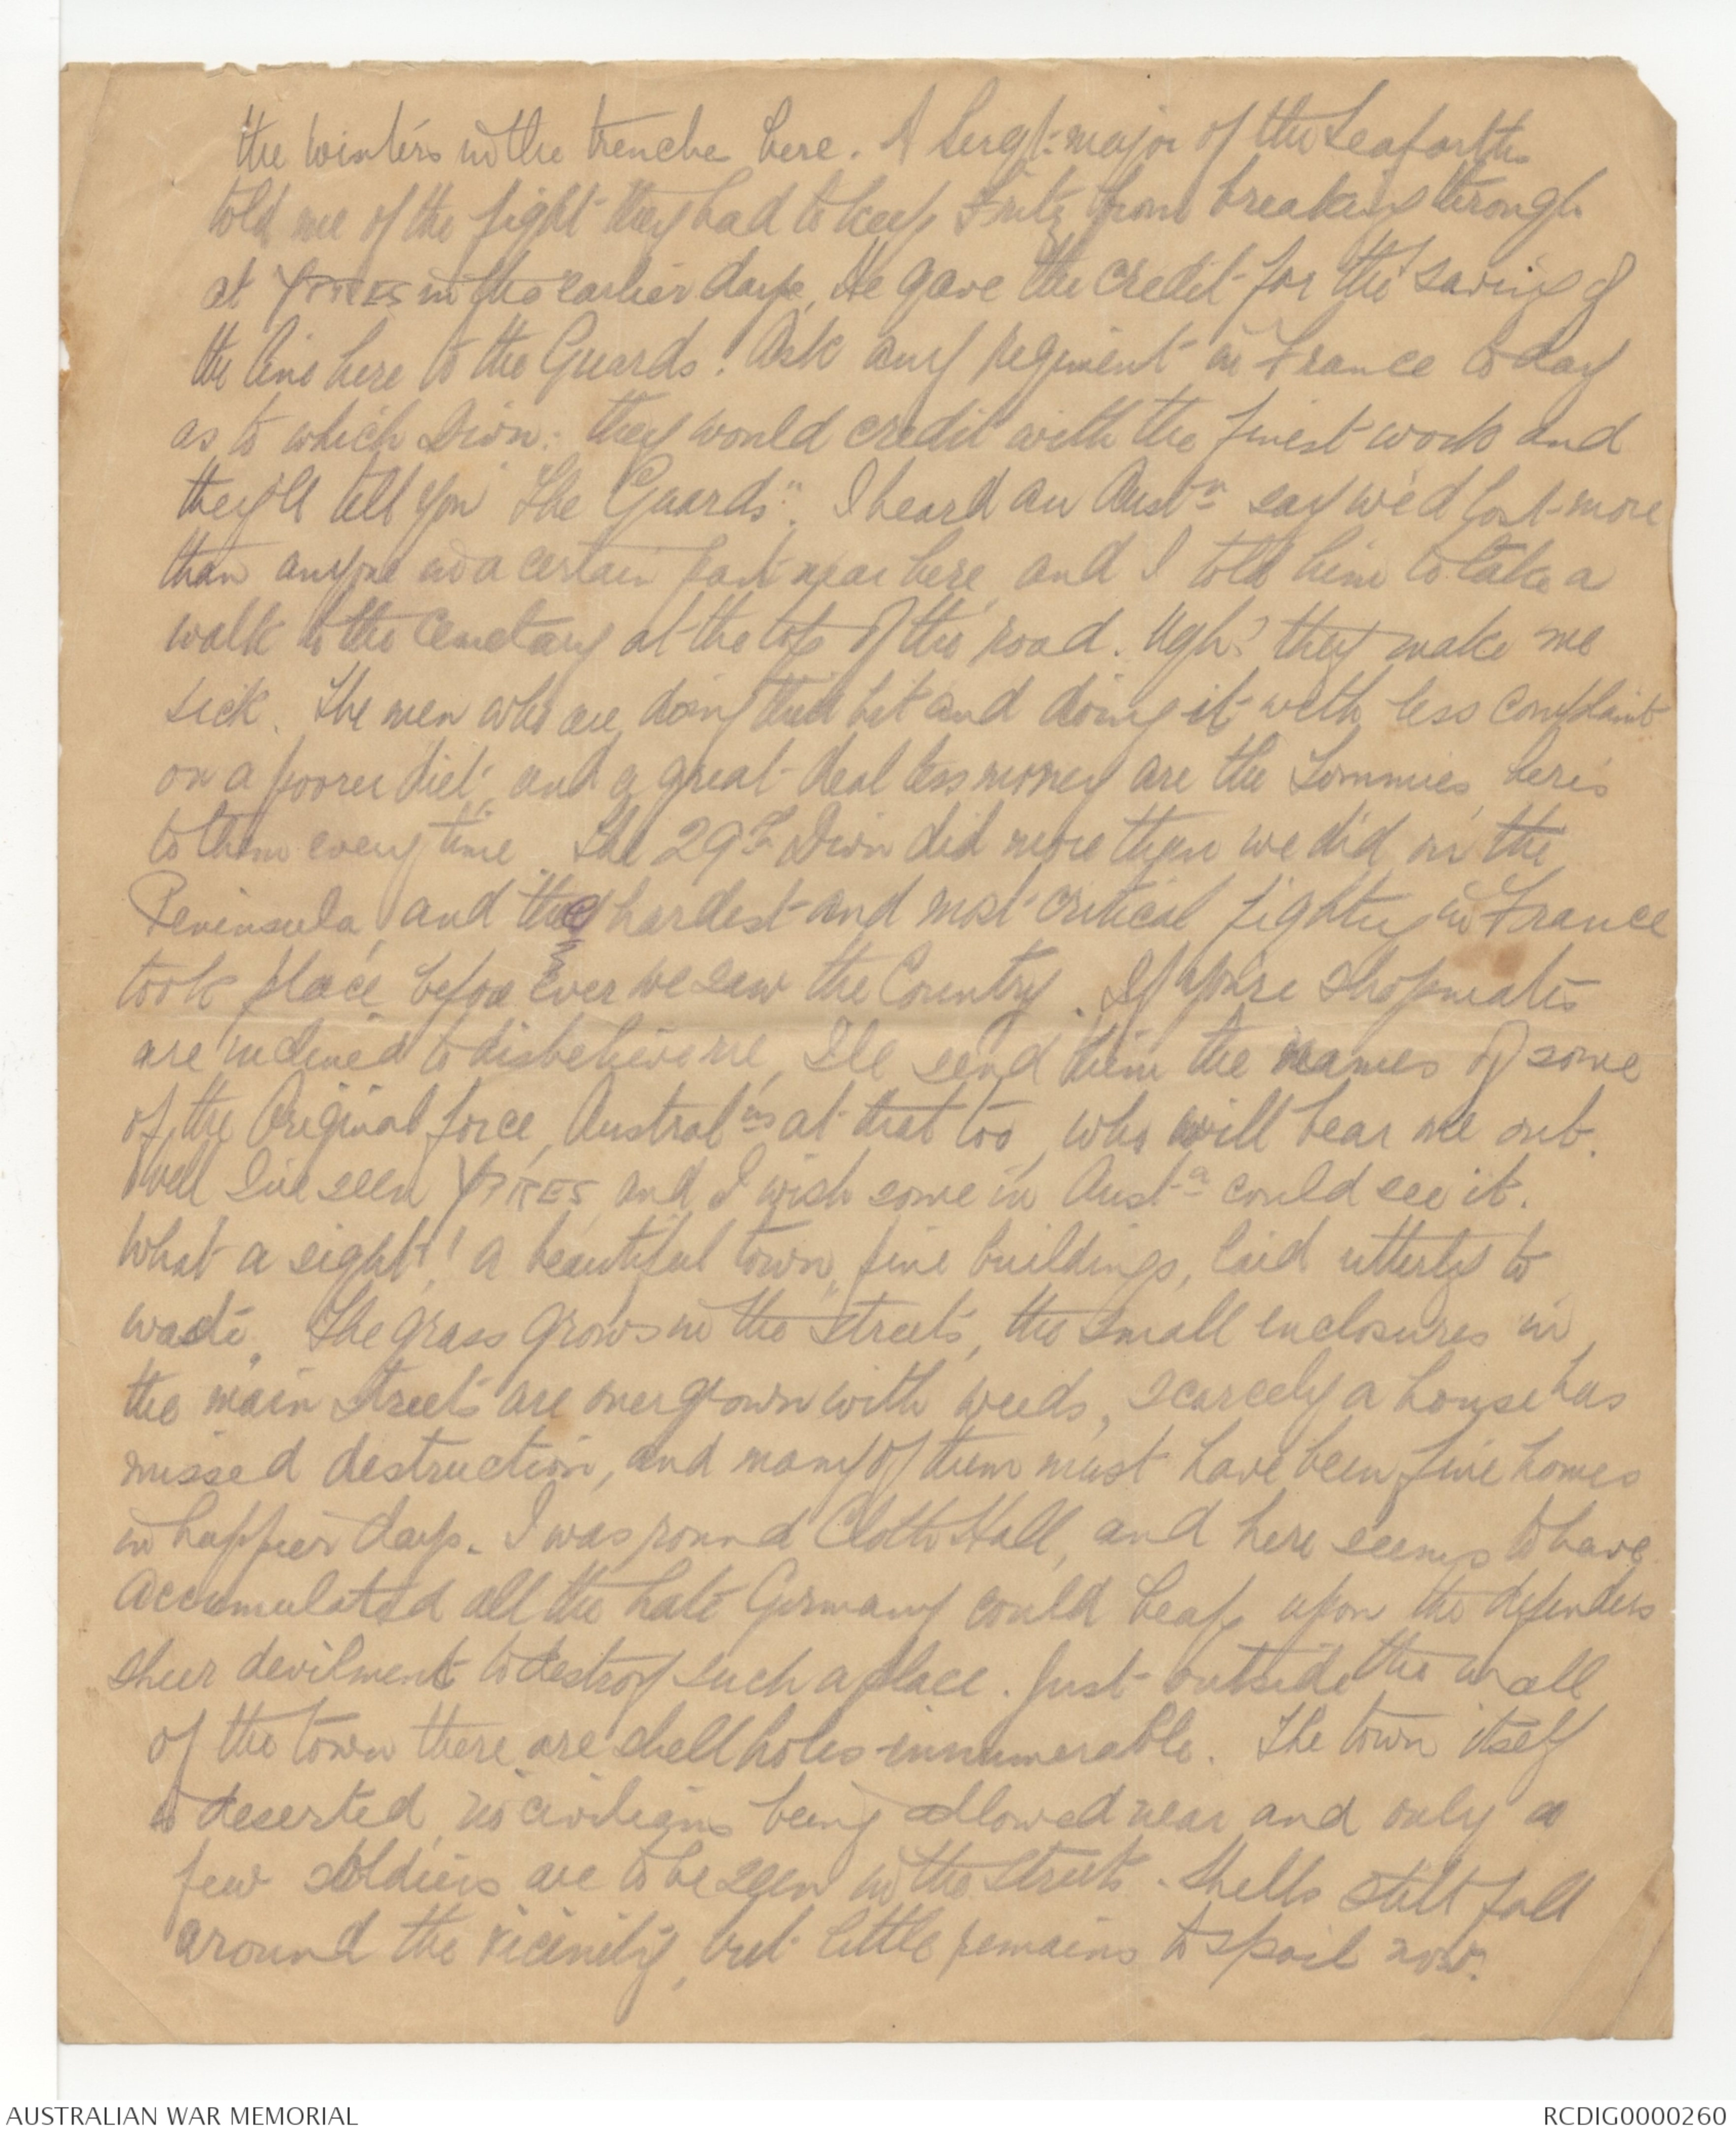 the winters in the trenches here. A Sergt-major of the Seaforths
told me of the fight they had to keep Fritz from breaking through
at YPRES in the earlier days, He gave the credit for the saving of
the line here to the Guards. Ask any regiment in France to day
as to which Divn: they would credit with the finest work and
they'll tell you "The Guards". I heard an Austn say we'd lost more
than anyone in a certain part near here, and I told him to take a
walk to the Cemetary at the top of the road. Ugh! they make me
sick. The men who are doing their bit and doing it with less complaint
on a poorer diet, and a great deal less money are the Tommies, here's
to them every time. The 29th Divn did more than we did on the
Peninsula, and the hardest and most critical fighting in France
took place before ever we saw the Country. If you're shopmates
are inclined to disbelieve me, I'll send them the names of some
of the Original force, Australns at that too, who will bear me out.
Well I've seen YPRES, and I wish some in Austa could see it.
What a sight! a beautiful town, fine buildings, laid utterly to
waste. The grass grows in the streets, the small enclosures in
the main streets are overgrown with weeds, scarcely a house has
missed destruction, and many of them must have been fine homes
in happier days. I was round Cloth Hall, and here seems to have
accumulated all the hate Germany could heap upon the defenders
sheer devilment to destroy such a place. Just outside the wall
of the town there are shell holes innumerable. The town itself
is deserted, no civilians being allowed near and only a
few soldiers are to be seen in the streets. Shells still fall
around the vicinity, but little remains to spoil now.
AUSTRALIAN WAR MEMORIAL
RCDIG0000260